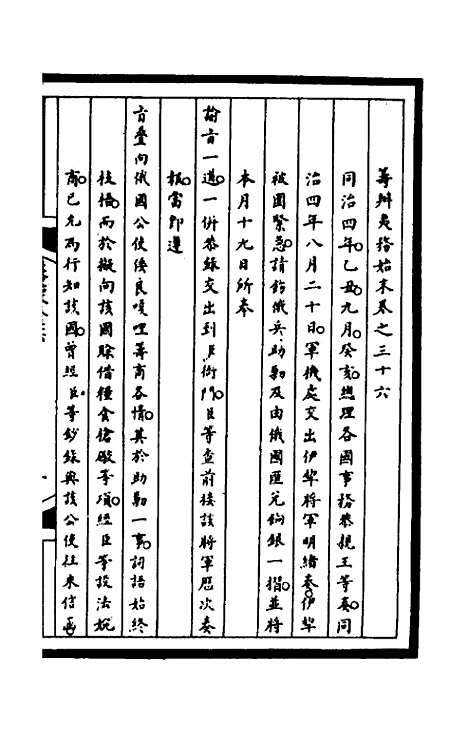 籌辦夷務始末卷之三十六
同治四年乙丑九月癸亥總理各國事務恭親王等奏同
治四年八月二十日軍機處交出伊犂將軍明緒奏伊犂
被圍緊急請飭俄兵助勦及由俄國匯兌餉銀一摺並將
本月十九日所奉
諭旨一道一併恭錄交出到臣衙門臣等查前接該將軍歷次奏
報當即遵
旨疊向俄國公使倭良嘎哩等商各情其於助勦一事詞語始終
枝梧而於擬向該國賒借糧食槍礮等項經臣等設法婉
商已允為行知該國曾經臣等鈔錄與該公使往來信函